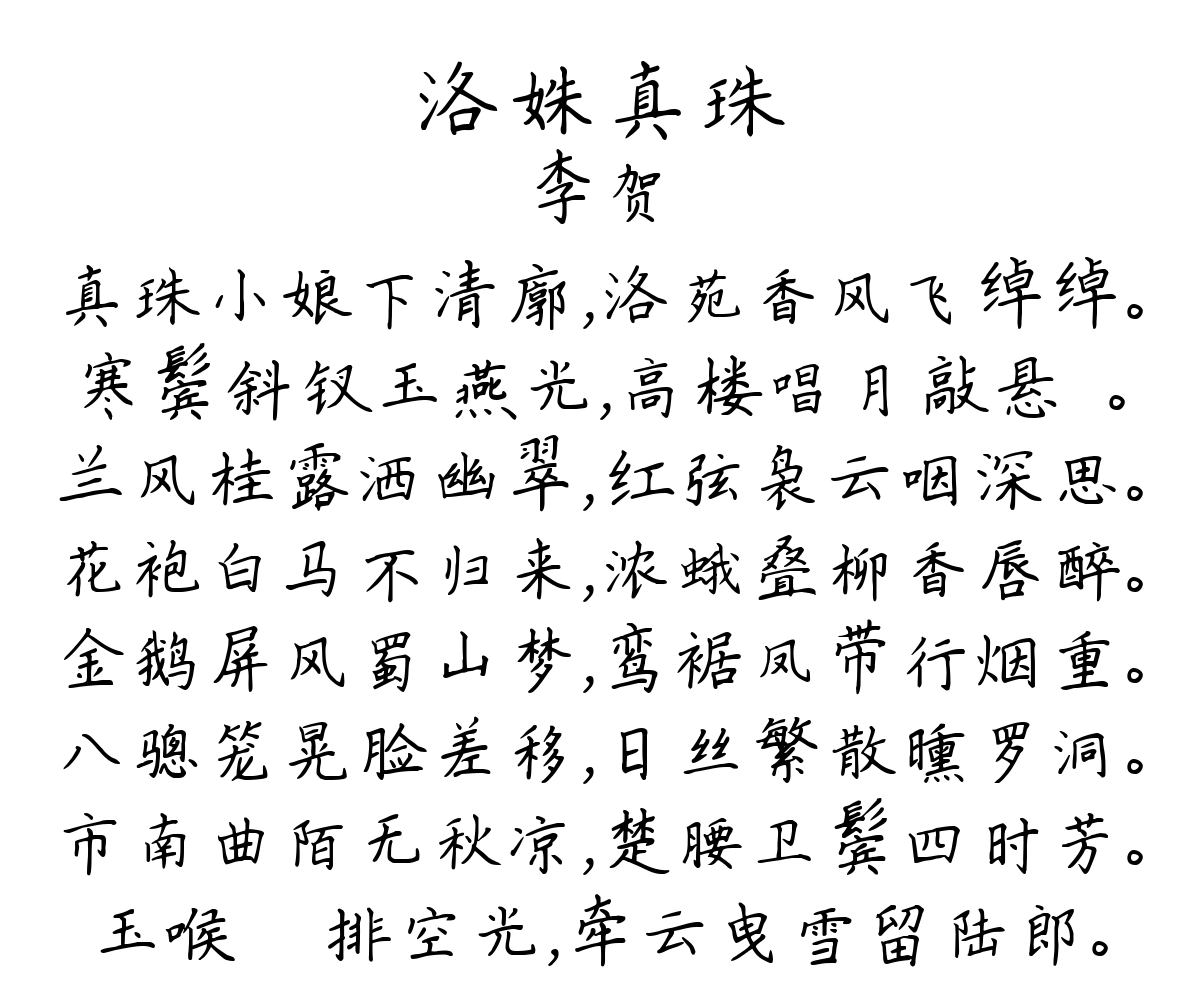 洛姝真珠
李贺
真珠小娘下清廓,洛苑香风飞绰绰。
寒鬓斜钗玉燕光,高楼唱月敲悬 。
兰风桂露洒幽翠,红弦袅云咽深思。
花袍白马不归来,浓蛾叠柳香唇醉。
金鹅屏风蜀山梦,鸾裾凤带行烟重。
八骢笼晃脸差移,日丝繁散曛罗洞。
市南曲陌无秋凉,楚腰卫鬓四时芳。
玉喉 排空光,牵云曳雪留陆郎。